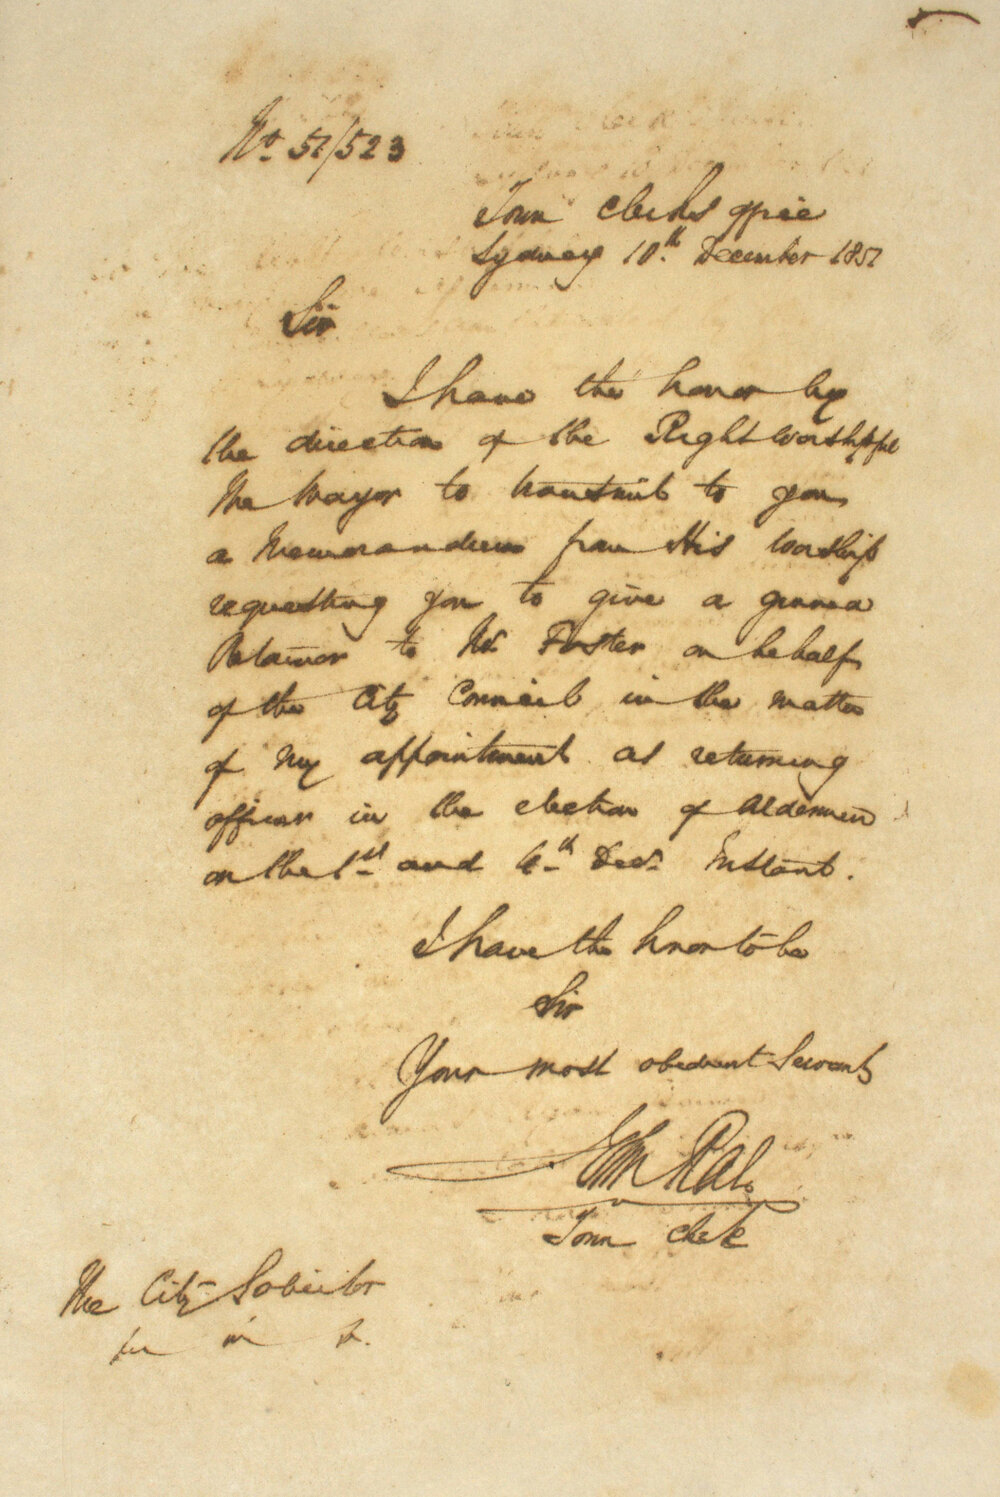 No. 51/523
Town Clerks Office
Sydney 10th December 1851
Sir
I have the honor by
the direction of the Right Worshipful
the Mayor to transmit to you
a Memorandum from His Worship
requesting you to give a general
Retainer to Mr Foster on behalf
of the City Council in the matter
of my appointment as returning
officer in the election of Aldermen
on the 1st and 4th Decr. Instant.
I have the honor to be
Sir
Your most obedient Servant
John Rae
Town Clerk
The City Solicitor